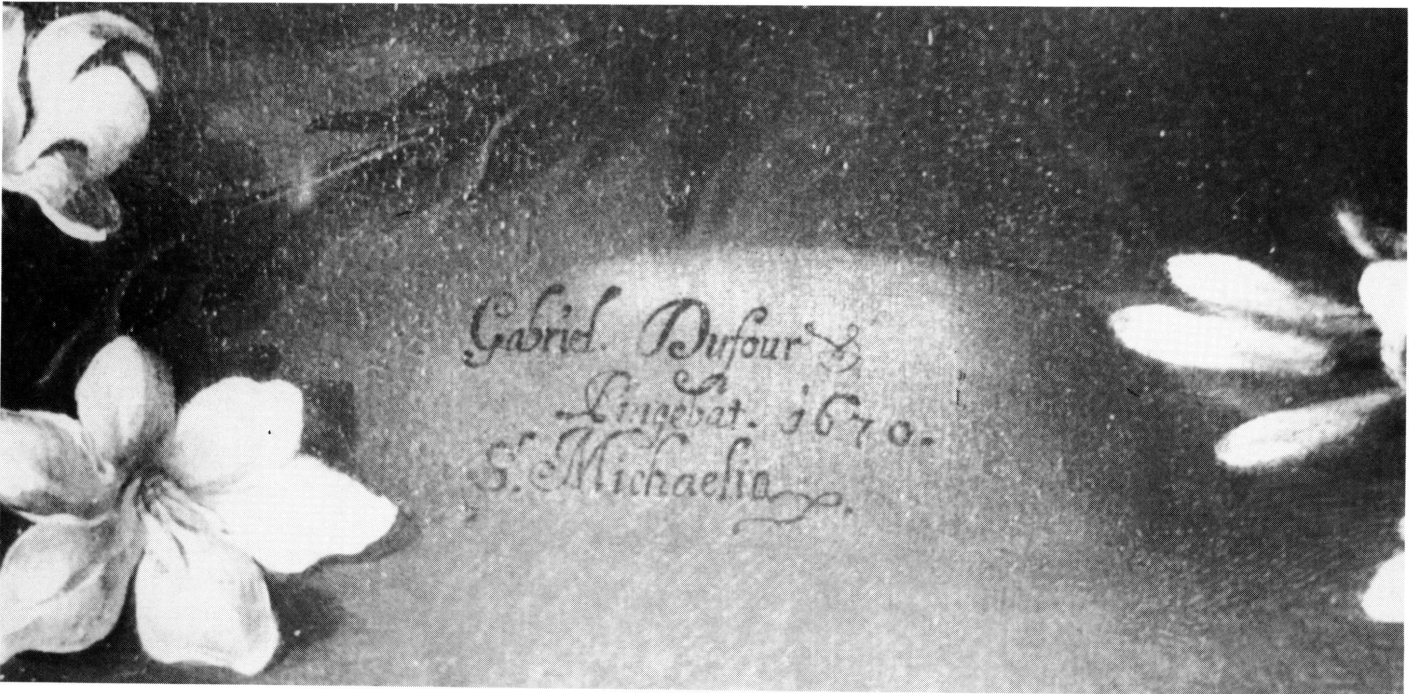 Gabriel. Dufour
Pingebat. 1670.
S. Michaelis.